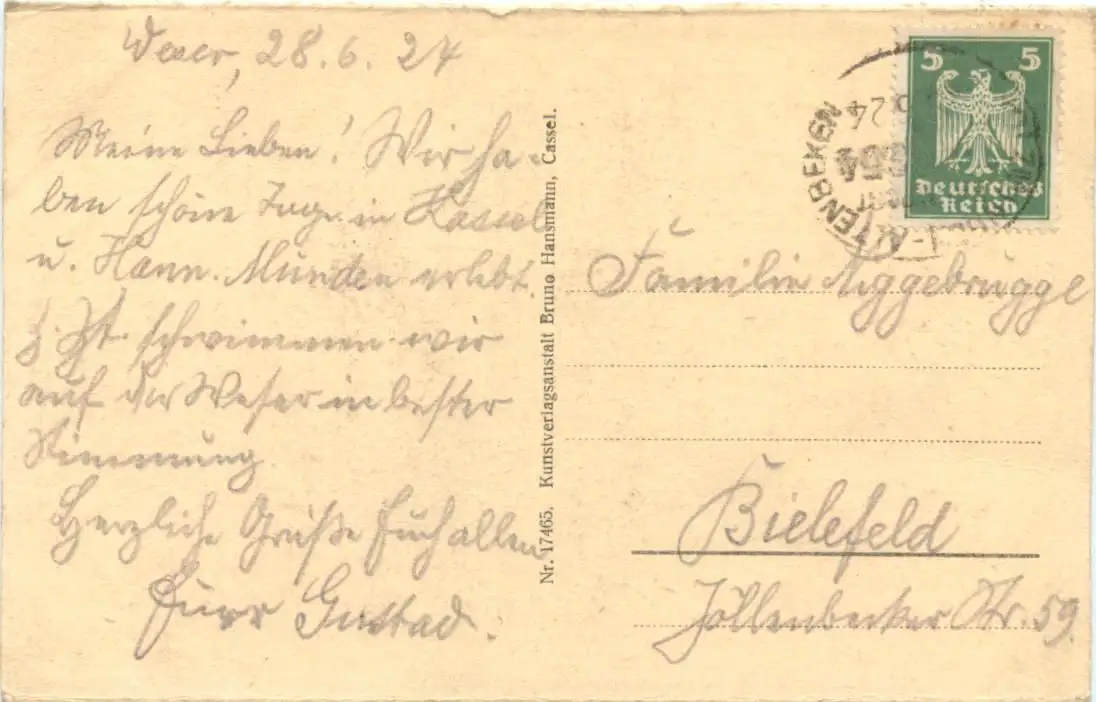 Weser, 28.6.24
Meine Lieben! Wir ha-
ben schöne Tage in Kassel
u. Hann. Münden erlebt.
z. Zt. schwimmen wir
auf der Weser in bester
Stimmung.
Herzliche Grüße Euch allen
Euer
Nr. 17465. Kunstverlagsanstalt Bruno Hansmann, Cassel.
5 5
Deutsches
Reich
ALTENBEKEN
24
Familie Niggebrügge
Bielefeld
Jöllenbecker Str. 59.